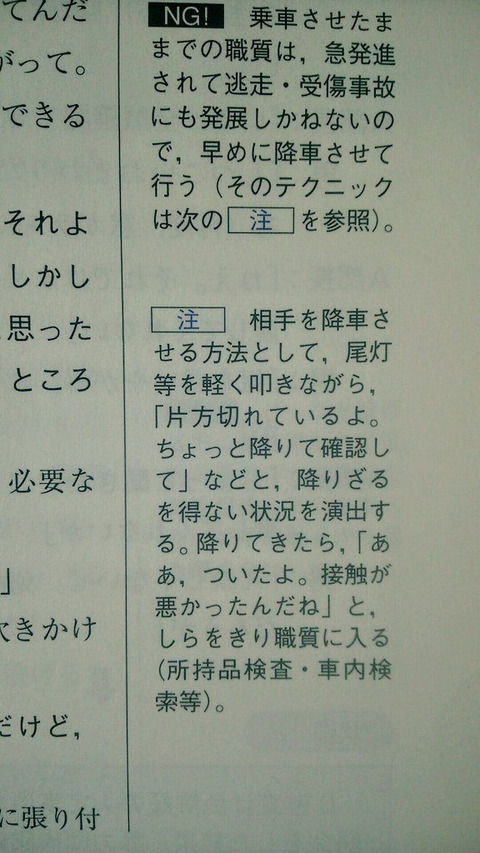 てんだ
がって。
できる
それよ
しかし
思った
ところ
必要な
」
欠きかけ
だけど，
に張り付
NG! 乗車させたま
までの職質は，急発進
されて逃走・受傷事故
にも発展しかねないの
で，早めに降車させて
行う（そのテクニック
は次の 注 を参照）。
注 相手を降車さ
せる方法として，尾灯
等を軽く叩きながら，
「片方切れているよ。
ちょっと降りて確認し
て」などと，降りざる
を得ない状況を演出す
る。降りてきたら，「あ
あ，ついたよ。接触が
悪かったんだね」と，
しらをきり職質に入る
（所持品検査・車内検
索等）。